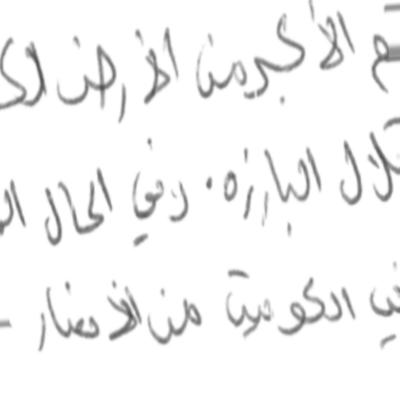 الأكبر من الأرض لكـ
ـتلال البارزه. وفي الحال الـ
في الكويت من الأمطار -